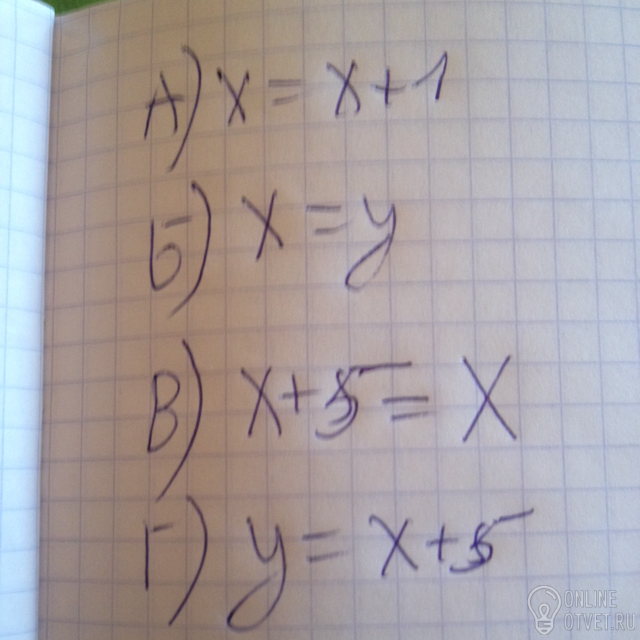 А) x = x+1
Б) x = y
В) x+5 = x
Г) y = x+5
ONLINE
OTVET.RU